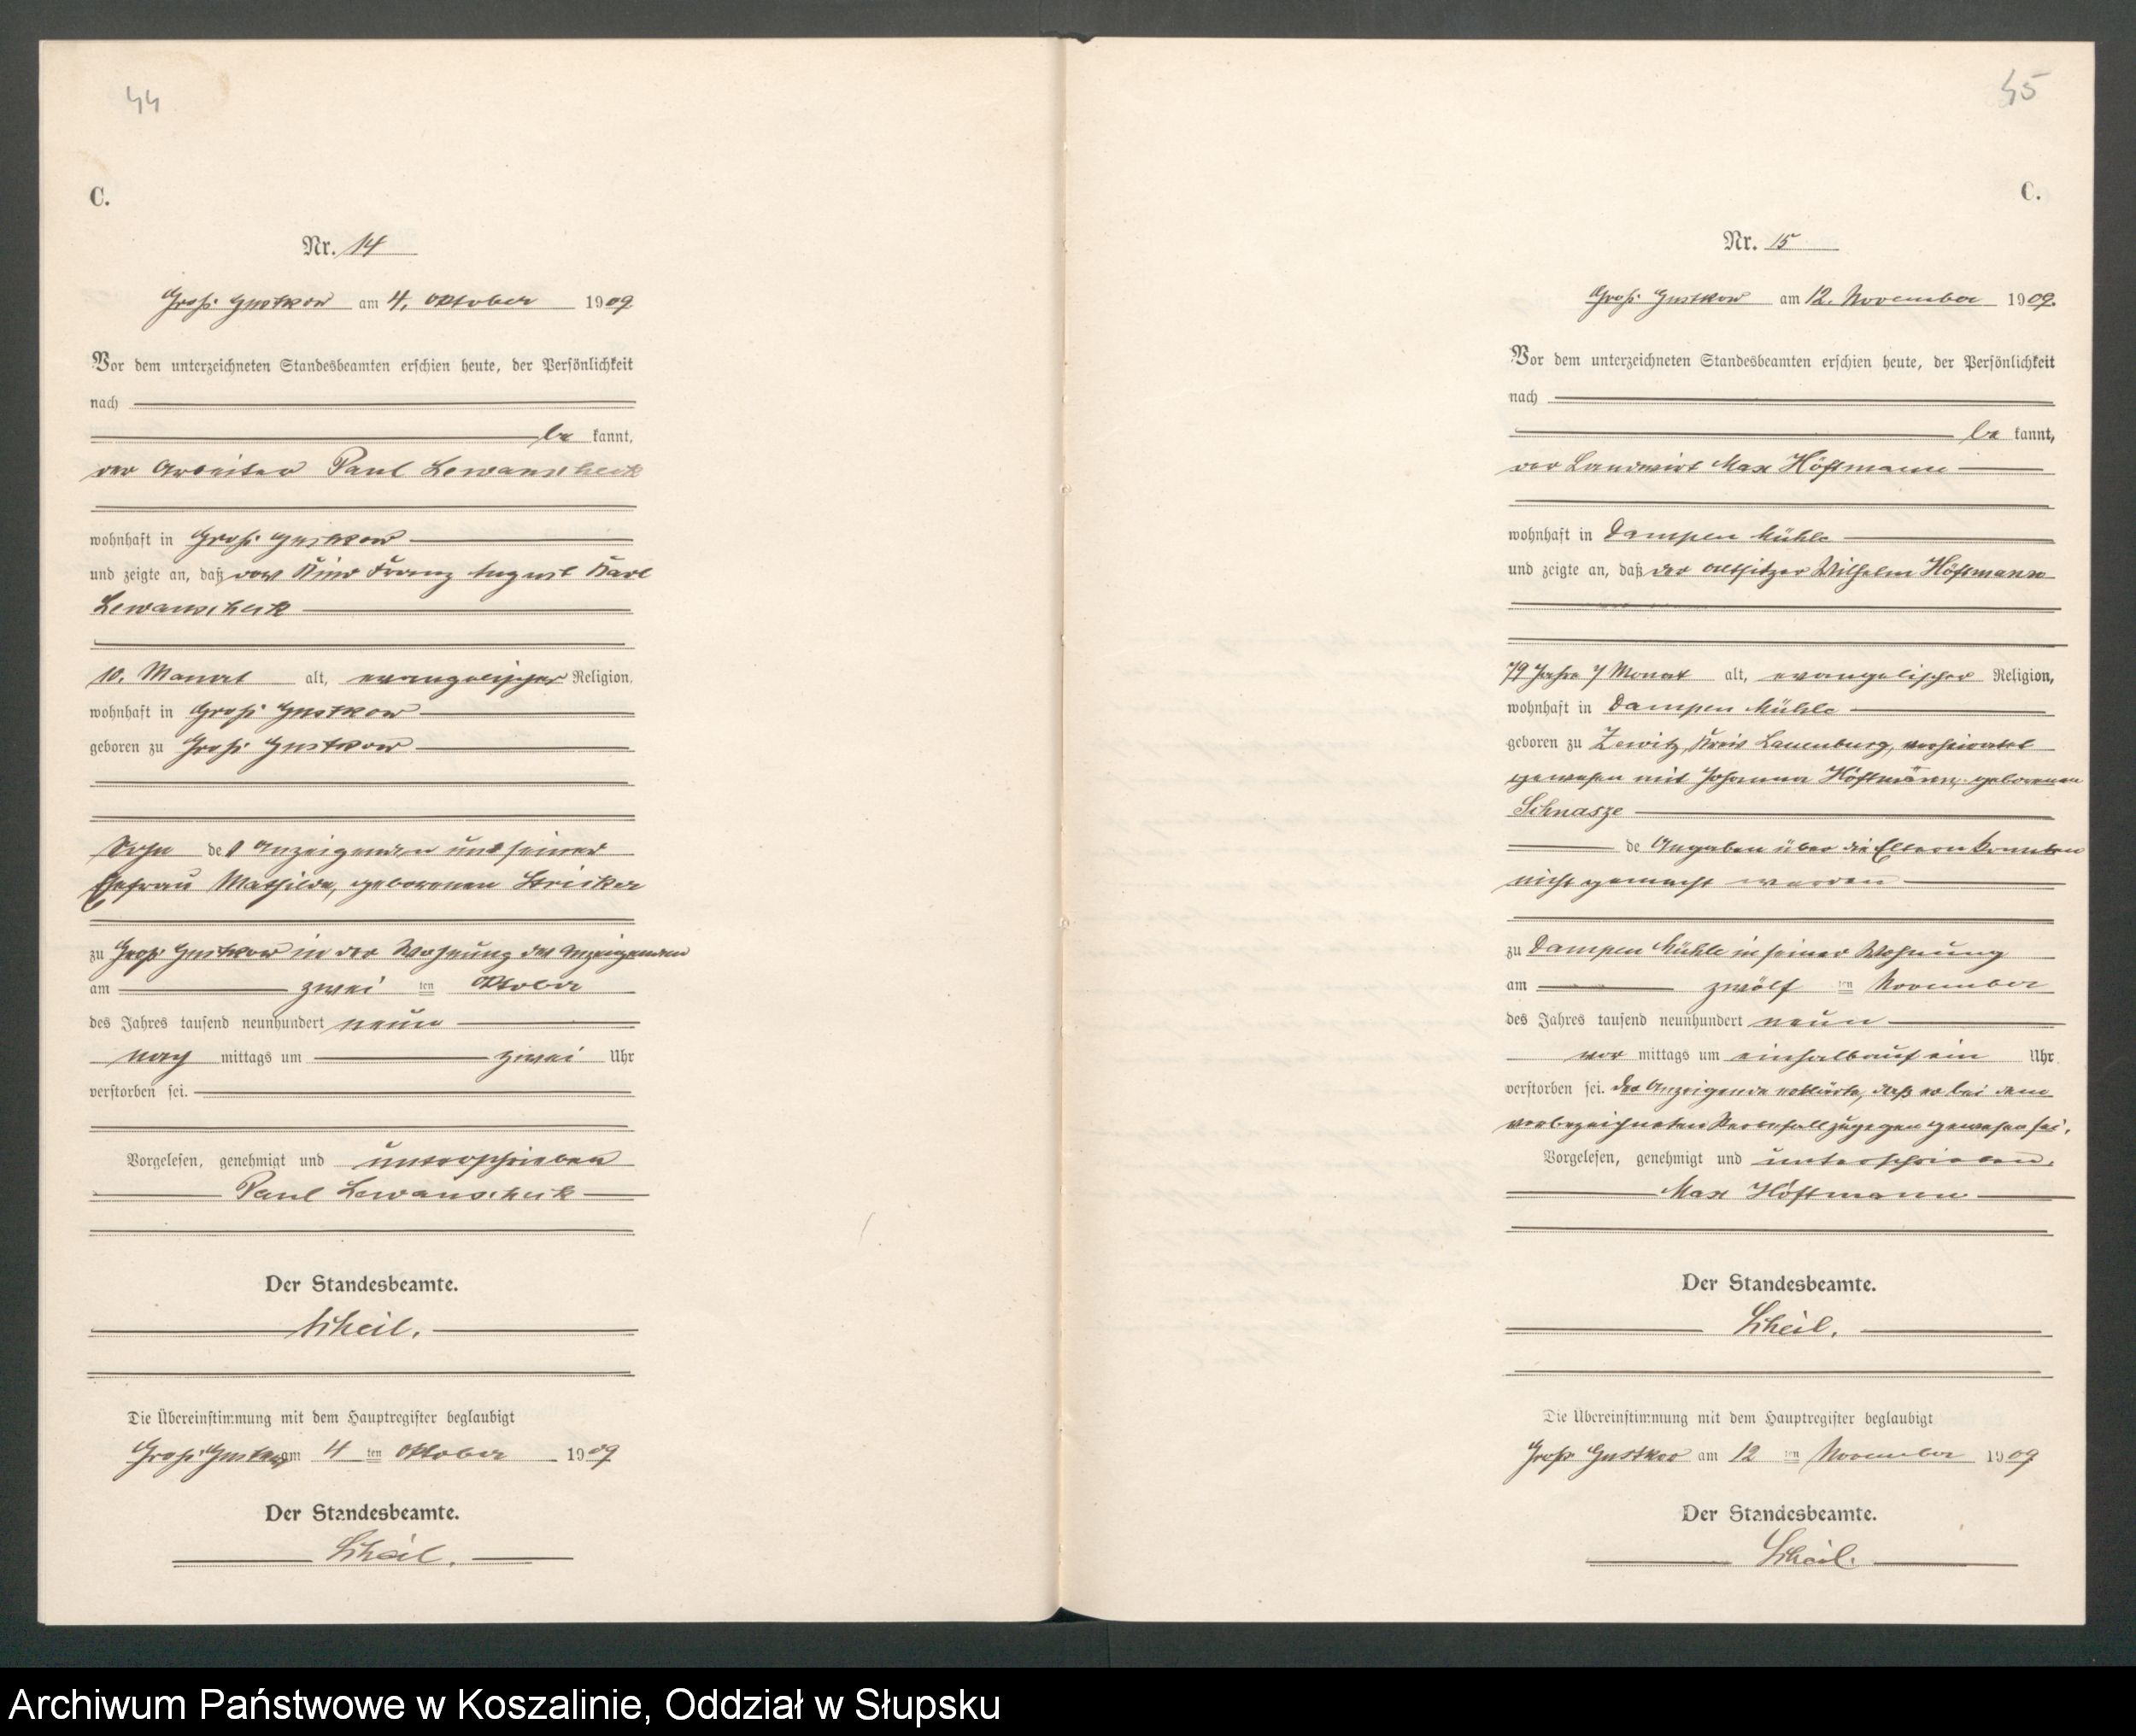 44
C.
Nr. 14
Groß Gustkow am 4. Oktober 1909
Vor dem unterzeichneten Standesbeamten erschien heute, der Persönlichkeit
nach
be kannt,
der Arbeiter Paul Lewanscheck
wohnhaft in Groß Gustkow
und zeigte an, daß das Kind Franz August Karl
Lewanscheck
10. Monat alt, evangelischer Religion,
wohnhaft in Groß Gustkow
geboren zu Groß Gustkow
Sohn des Anzeigenden und seiner
Ehefrau Mathilde, geborenen Stricker
zu Groß Gustkow in der Wohnung des Anzeigenden
am zwei ten Oktober
des Jahres tausend neunhundert neun
nach mittags um zwei Uhr
verstorben sei.
Vorgelesen, genehmigt und unterschrieben
Paul Lewanscheck
Der Standesbeamte.
Scheil.
Die Übereinstimmung mit dem Hauptregister beglaubigt
Groß Gustkow am 4 ten Oktober 1909
Der Standesbeamte.
Scheil.
45
C.
Nr. 15
Groß Gustkow am 12. November 1909.
Vor dem unterzeichneten Standesbeamten erschien heute, der Persönlichkeit
nach
be kannt,
der Landwirt Max Höftmann
wohnhaft in Dampen Mühle
und zeigte an, daß der Altsitzer Wilhelm Höftmann
79 Jahre 7 Monat alt, evangelischer Religion,
wohnhaft in Dampen Mühle
geboren zu Zewitz, Kreis Lauenburg, verheiratet
gewesen mit Johanna Höftmann, geborenen
Schnasze
de Angaben über die Eltern konnten
nicht gemacht werden
zu Dampen Mühle in seiner Wohnung
am zwölf ten November
des Jahres tausend neunhundert neun
vor mittags um einhalb auf ein Uhr
verstorben sei. Der Anzeigende erklärte, daß er bei dem
vorbezeichneten Sterbefall zugegen gewesen sei.
Vorgelesen, genehmigt und unterschrieben.
Max Höftmann
Der Standesbeamte.
Scheil.
Die Übereinstimmung mit dem Hauptregister beglaubigt
Groß Gustkow am 12 ten November 1909
Der Standesbeamte.
Scheil.
Archiwum Państwowe w Koszalinie, Oddział w Słupsku